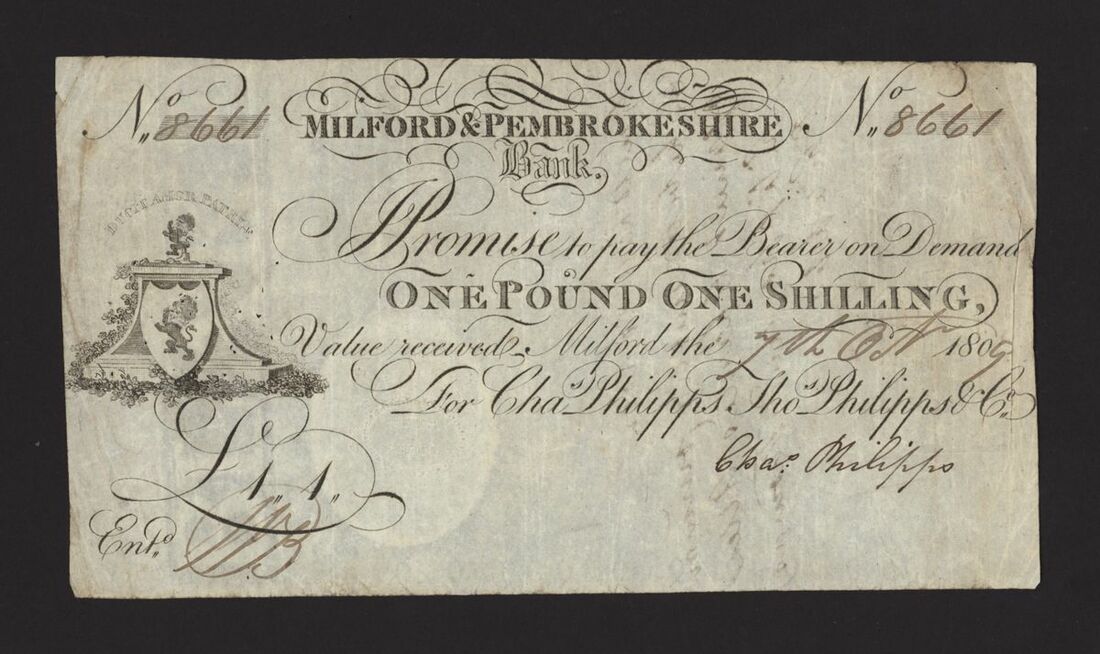 No 8661 MILFORD & PEMBROKESHIRE No 8661
Bank.
DUCIT AMOR PATRIÆ
I Promise to pay the Bearer on Demand
ONE POUND ONE SHILLING,
Value received Milford the 7th Oct 1809
For Chas Philipps Thos Philipps & Co.
Chas Philipps
£1,, 1,,
Entd